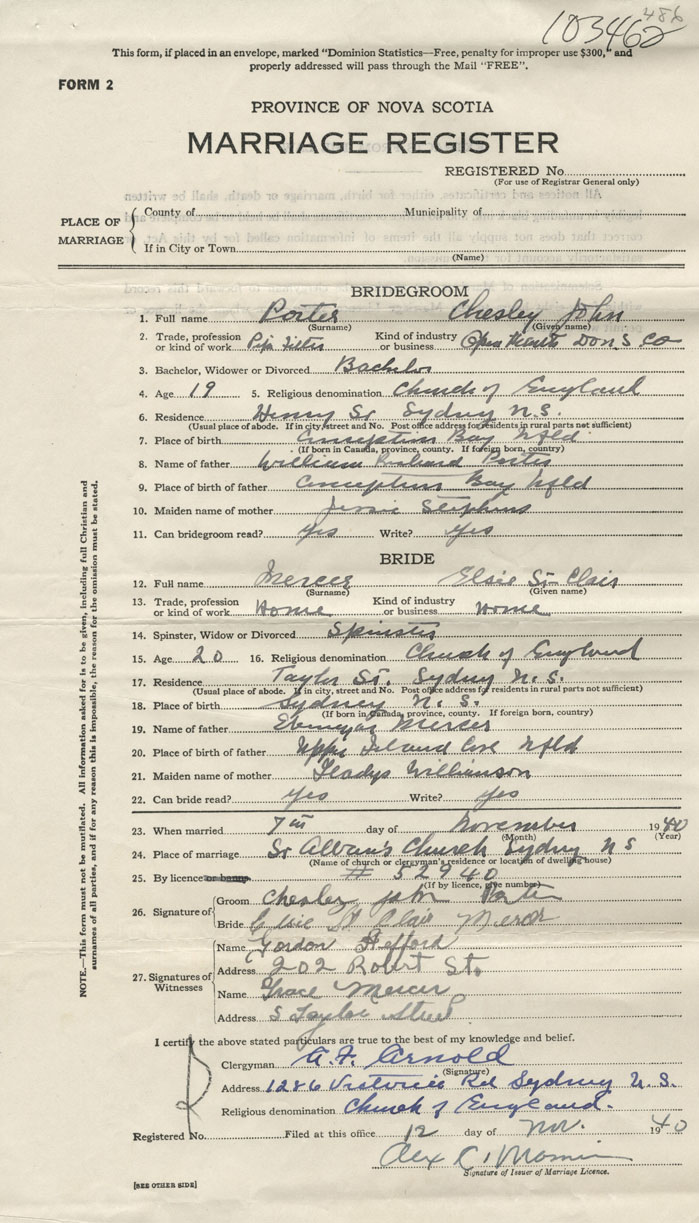 486
103462
This form, if placed in an envelope, marked "Dominion Statistics—Free, penalty for improper use $300," and
properly addressed will pass through the Mail "FREE".
FORM 2
PROVINCE OF NOVA SCOTIA
MARRIAGE REGISTER
REGISTERED No.
(For use of Registrar General only)
PLACE OF MARRIAGE
County of Municipality of
If in City or Town
(Name)
BRIDEGROOM
1. Full name Porter Chesley John
(Surname) (Given name)
2. Trade, profession or kind of work Pipe Fitter Kind of industry or business Open Hearth Dom. S. Co
3. Bachelor, Widower or Divorced Bachelor
4. Age 19 5. Religious denomination Church of England
6. Residence Henry St Sydney N.S.
(Usual place of abode. If in city, street and No. Post office address for residents in rural parts not sufficient)
7. Place of birth Conception Bay Nfld
(If born in Canada, province, county. If foreign born, country)
8. Name of father William Richard Porter
9. Place of birth of father Conception Bay Nfld
10. Maiden name of mother Jessie Stephens
11. Can bridegroom read? yes Write? yes
BRIDE
12. Full name Mercer Elsie St. Clair
(Surname) (Given name)
13. Trade, profession or kind of work Home Kind of industry or business Home
14. Spinster, Widow or Divorced Spinster
15. Age 20 16. Religious denomination Church of England
17. Residence Taylor St. Sydney N.S.
(Usual place of abode. If in city, street and No. Post office address for residents in rural parts not sufficient)
18. Place of birth Sydney N.S.
(If born in Canada, province, county. If foreign born, country)
19. Name of father Mercer
20. Place of birth of father Upper Island Cove Nfld
21. Maiden name of mother Gladys Williamson
22. Can bride read? yes Write? yes
23. When married 7th day of November 1940
(Month) (Year)
24. Place of marriage St Alban's Church Sydney N S
(Name of church or clergyman's residence or location of dwelling house)
25. By licence or banns # 52940
(If by licence, give number)
26. Signature of
Groom Chesley John Porter
Bride Elsie St Clair Mercer
27. Signatures of Witnesses
Name Gordon Hefford
Address 202 Robert St.
Name Grace Mercer
Address 5 Taylor Street
I certify the above stated particulars are true to the best of my knowledge and belief.
Clergyman A. F. Arnold
(Signature)
Address 1286 Victoria Rd Sydney N.S.
Religious denomination Church of England.
Registered No. Filed at this office 12 day of Nov. 1940
Alex C.
Signature of Issuer of Marriage Licence.
[SEE OTHER SIDE]
NOTE.—This form must not be mutilated. All information asked for is to be given, including full Christian and
surnames of all parties, and if for any reason this is impossible, the reason for the omission must be stated.